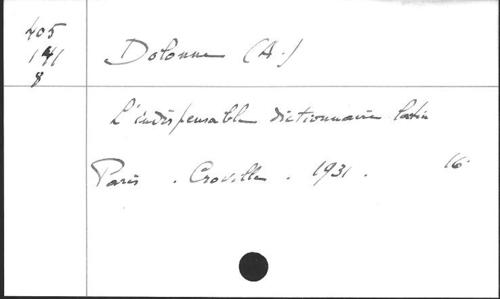 405
141
8
Dolonne (A.)
L'indispensable dictionnaire latin
Paris . Croville . 1931 . 16.